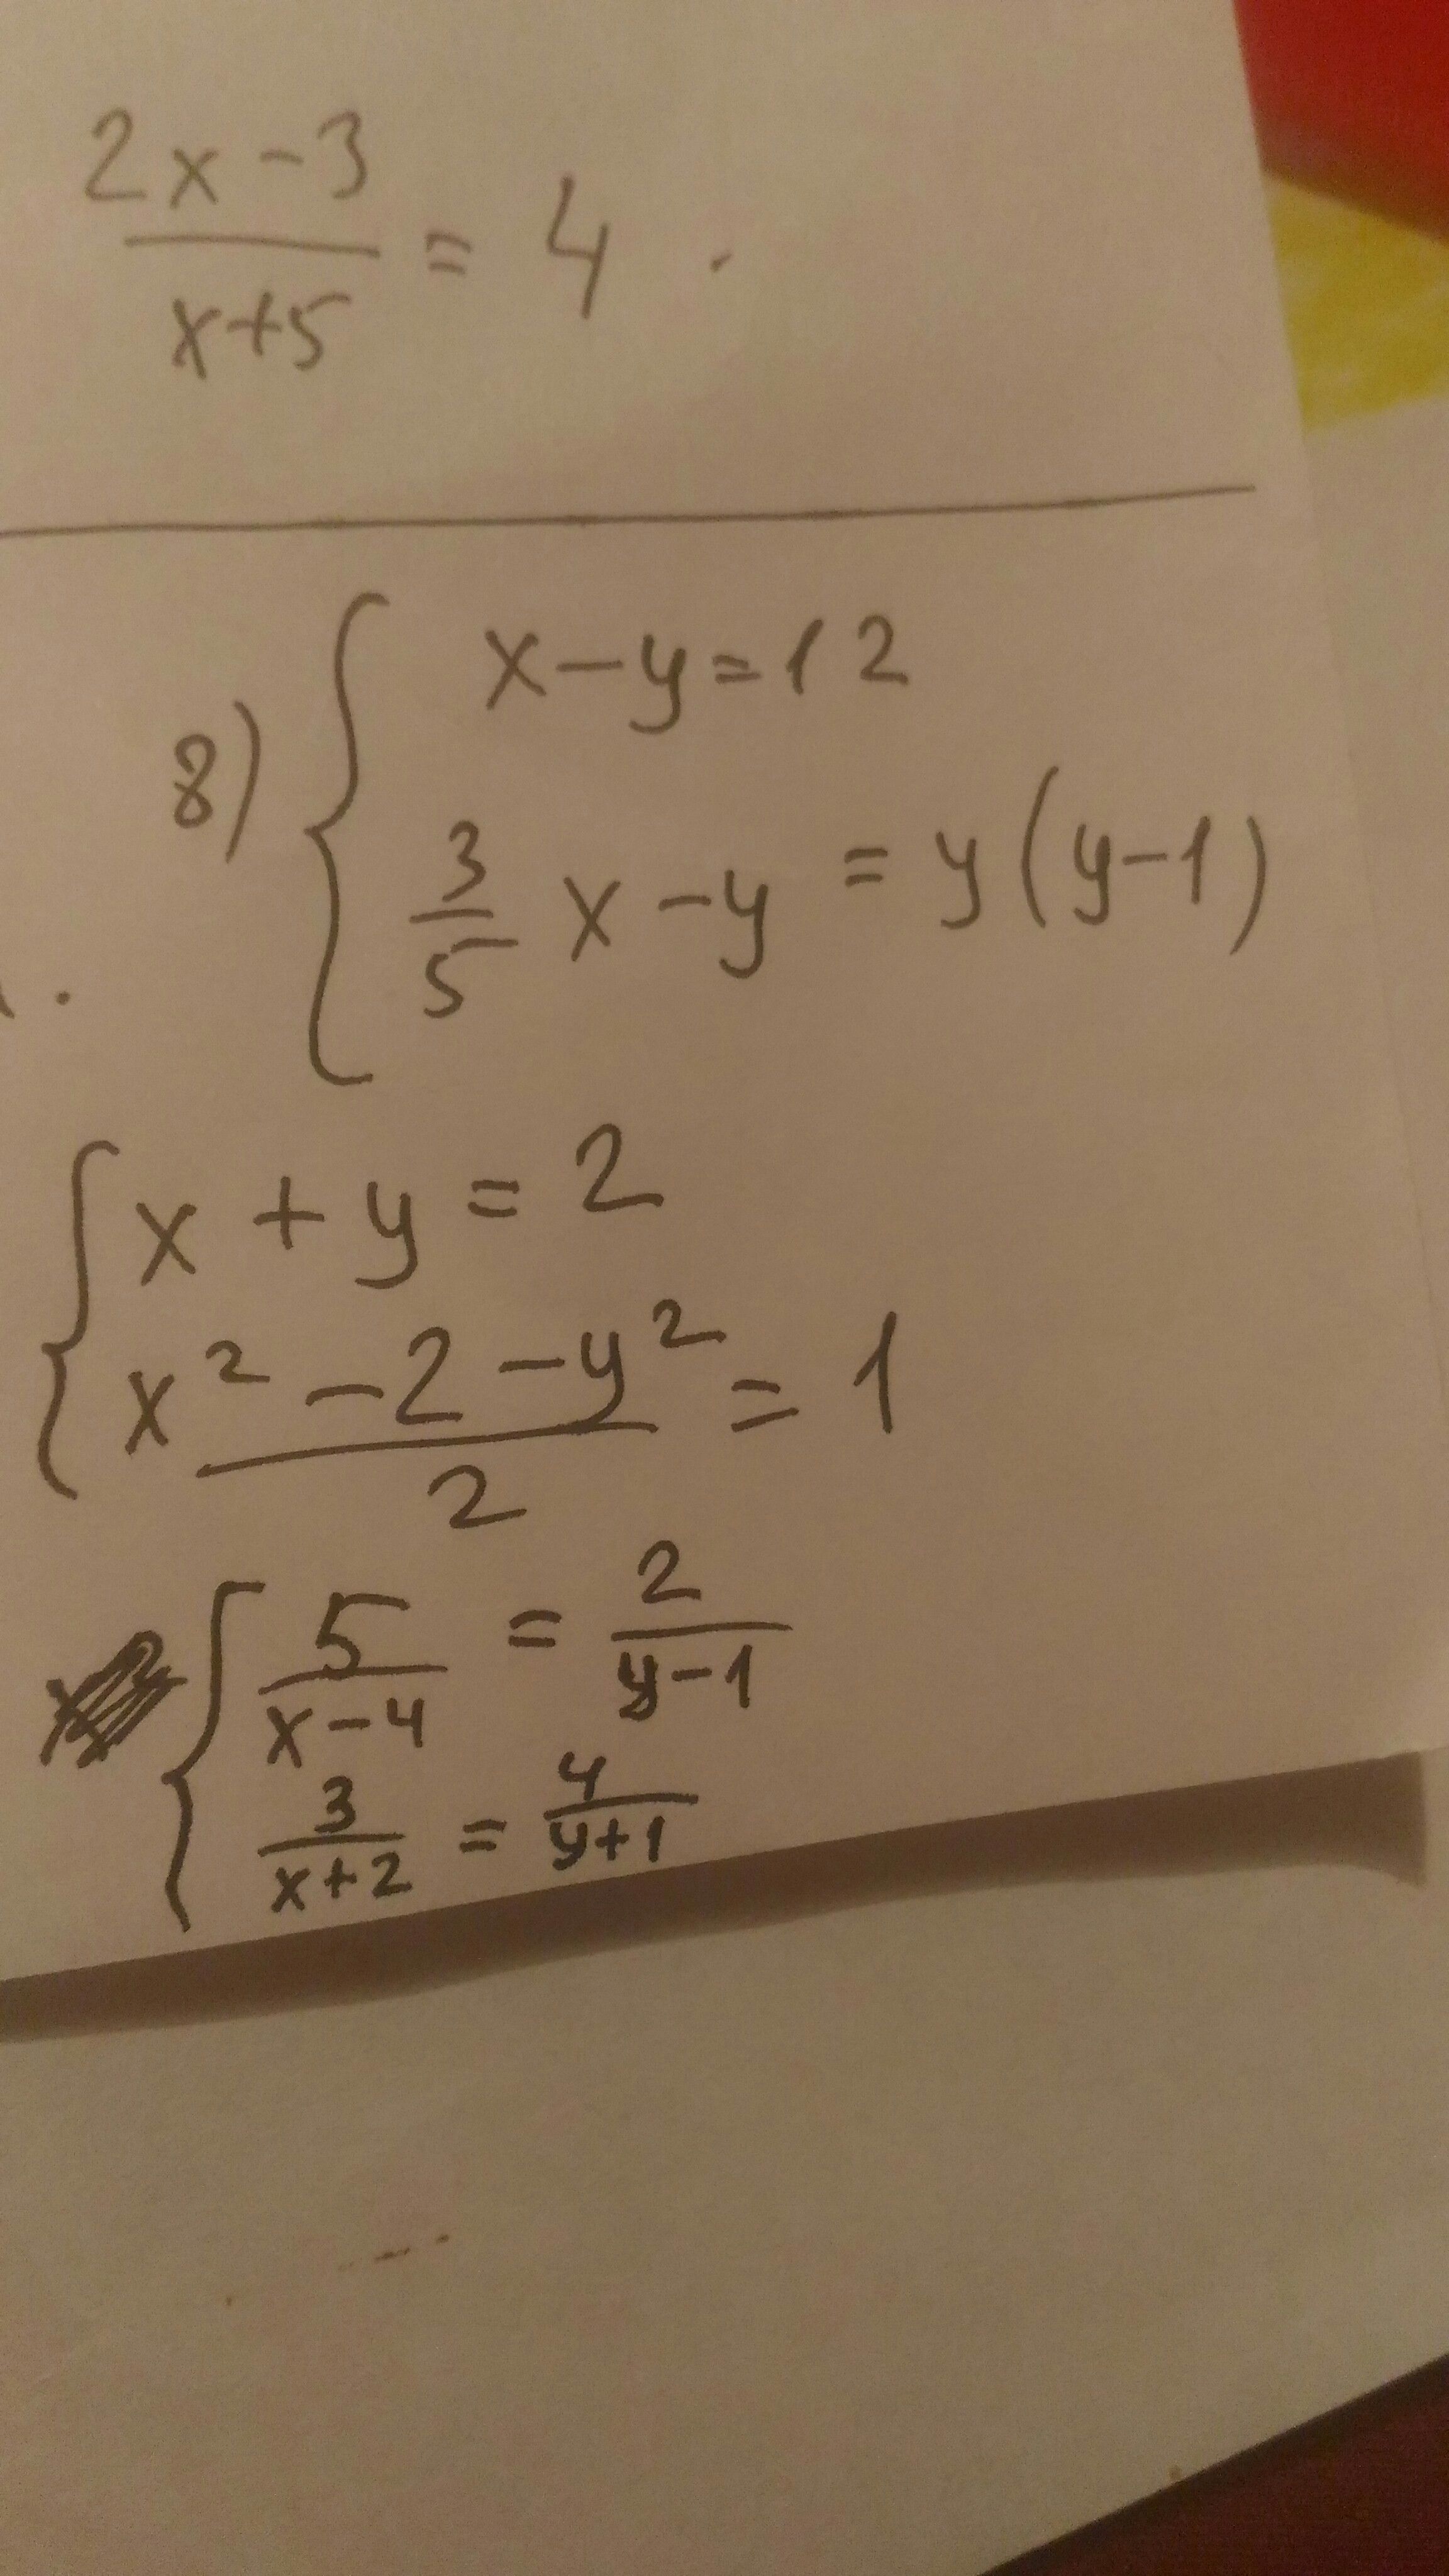 2x-3
─── = 4 .
x+5
8) { x-y=12
3/5 x-y = y(y-1)
{ x + y = 2
(x² -2 -y²)/2 = 1
{ 5/(x-4) = 2/(y-1)
3/(x+2) = 4/(y+1)